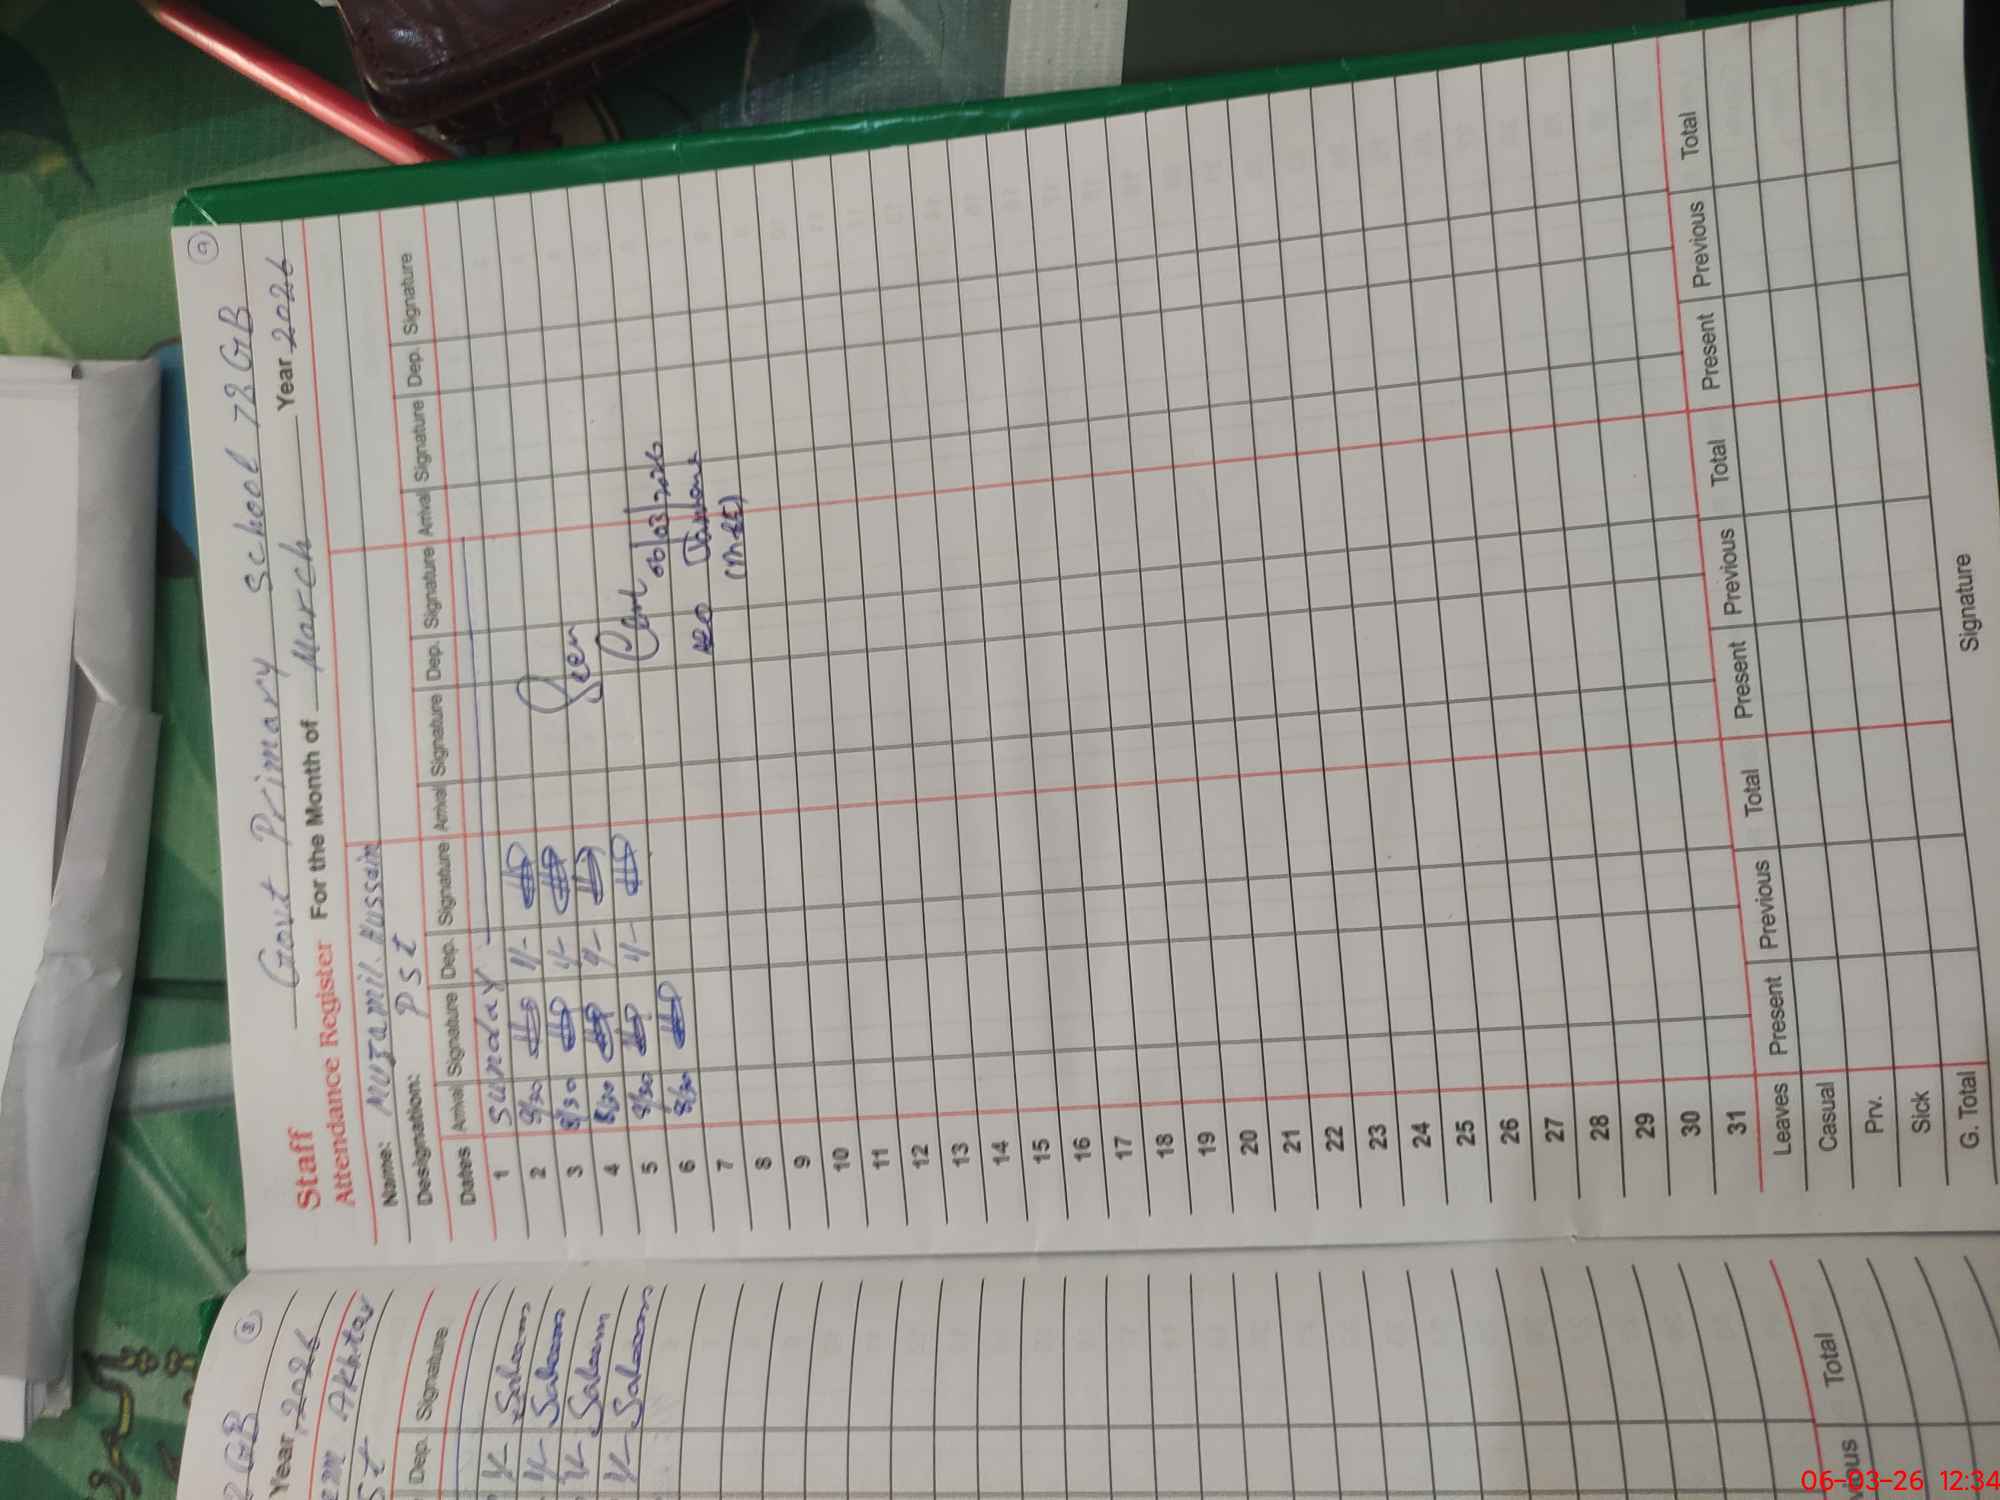 9
Govt Primary School 72 GB
Staff
Attendance Register For the Month of March Year 2026
Name: Muzamil Hussain
Designation: PSt
Dates Arrival Signature Dep. Signature Arrival Signature Dep. Signature Arrival Signature Dep. Signature
1 Sunday
2 8/30 1/-
3 8/30 1/- Seen
4 8/30 1/-
5 8/30 1/- 06/03/2026
6 8/30 AEO
7 (M-EE)
8
9
10
11
12
13
14
15
16
17
18
19
20
21
22
23
24
25
26
27
28
29
30
31
Leaves Present Previous Total Present Previous Total Present Previous Total
Casual
Prv.
Sick
G. Total
Signature
8
2 GB
Year 2026
Akhtar
St
Dep. Signature
1/- Saleem
1/- Saleem
1/- Saleem
1/- Saleem
vious Total
06-03-26 12:34